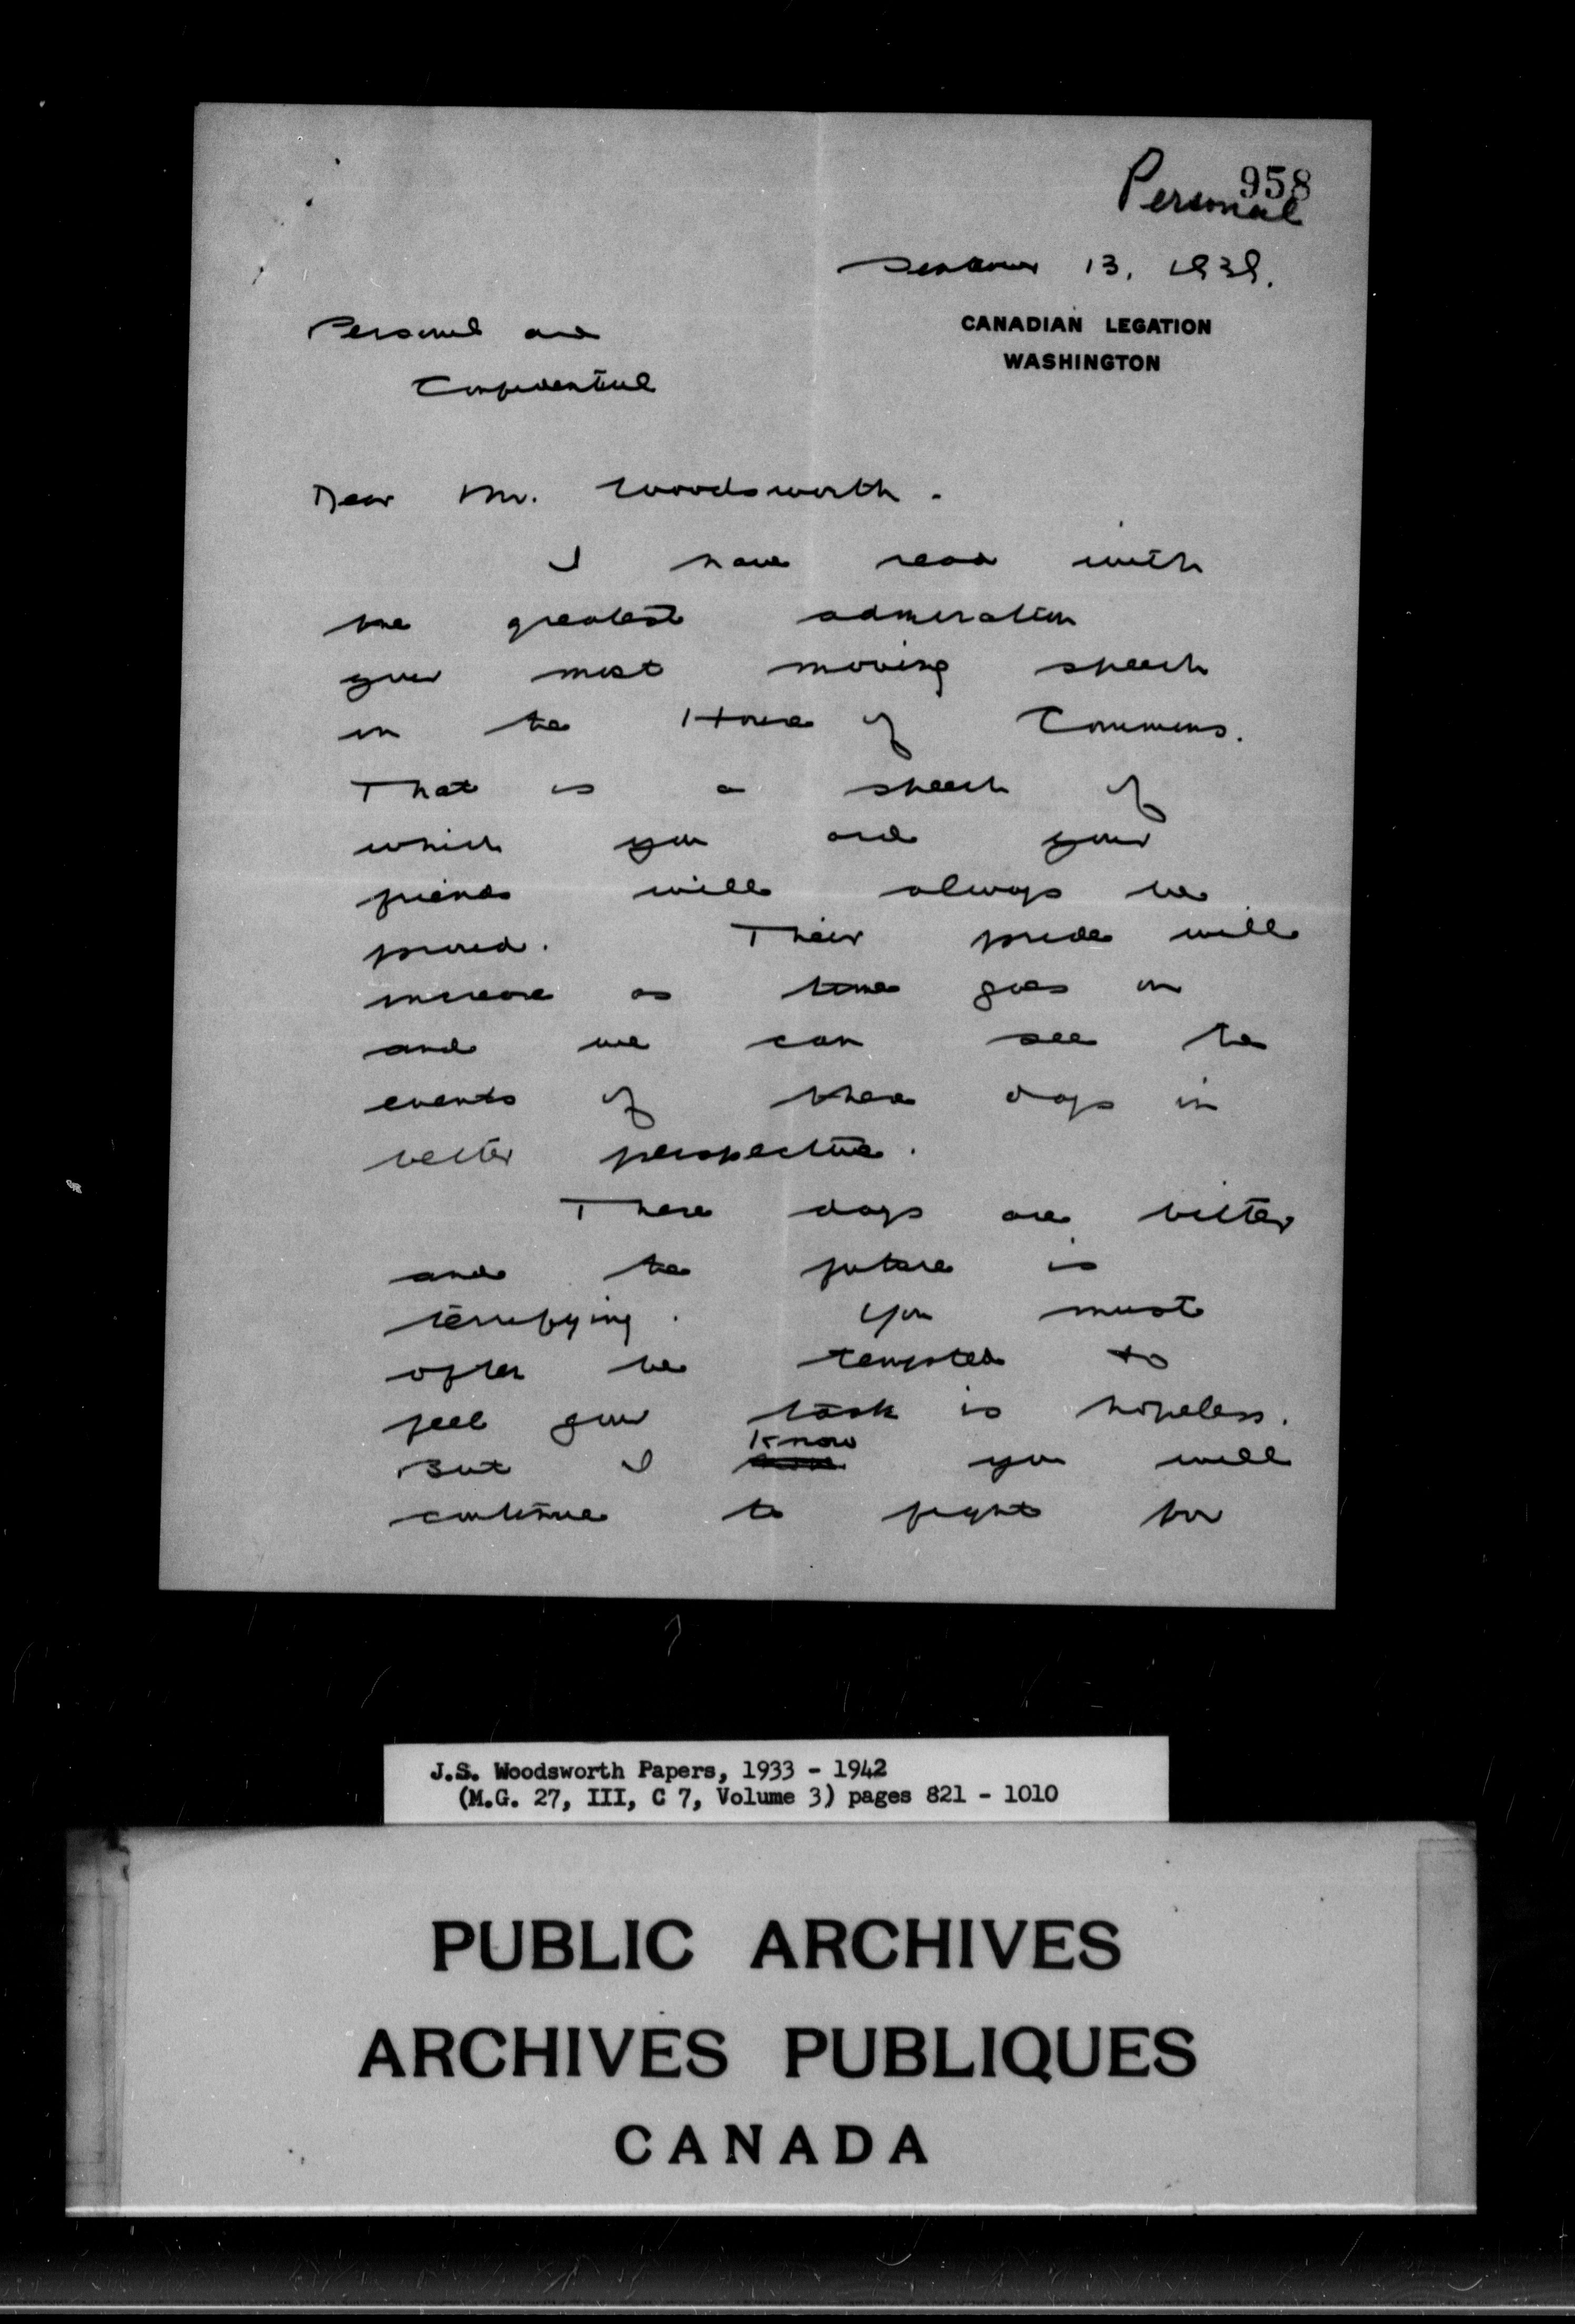 958
Personal
September 13, 1939.
CANADIAN LEGATION
WASHINGTON
Personal and
Confidential
Dear Mr. Woodsworth.
I have read with
the greatest admiration
your most moving speech
in the House of Commons.
That is a speech of
which you and your
friends will always be
proud. Their pride will
increase as time goes on
and we can see the
events of these days in
better perspective.
These days are bitter
and the future is
terrifying. You must
often be tempted to
feel your task is hopeless.
But I know you will
continue to fight for
J.S. Woodsworth Papers, 1933 - 1942
(M.G. 27, III, C 7, Volume 3) pages 821 - 1010
PUBLIC ARCHIVES
ARCHIVES PUBLIQUES
CANADA